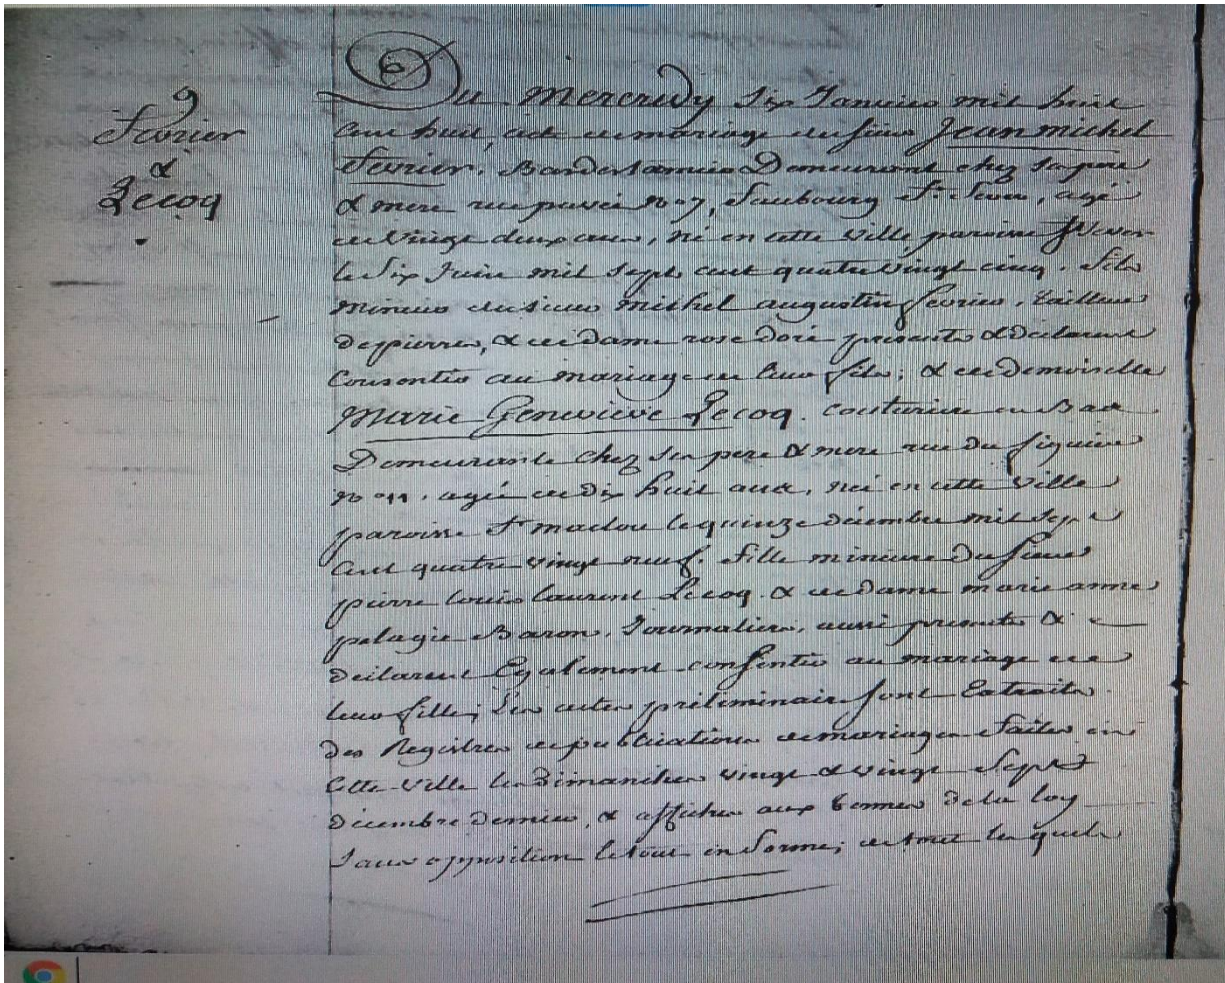 9
Fevrier
&
Lecoq
6
Du mercredy six Janvier mil huit
cent huit, acte de mariage du sieur Jean michel
Fevrier, Demeurant chez son pere
& mere rue pavée no 7, Faubourg St Sever, agé
de vingt deux ans, né en cette ville, paroisse St Sever
le six Juin mil sept cent quatre vingt cinq, fils
mineur du sieur michel augustin fevrier, tailleur
de pierres, & de dame rose doré presents & declarant
Consentir au mariage de leur fils; & de demoiselle
marie Geneviève Lecoq, couturiere en Bas
Demeurante chez ses pere & mere rue du figuier
no 11, agée de dix huit ans, née en cette ville
paroisse St maclou le quinze décembre mil sept
cent quatre vingt neuf, fille mineure du sieur
pierre louis laurent Lecoq & de dame marie anne
pelagie Baron, Journaliers, aussi presents &
declarant Egalement consentir au mariage de
leur fille; Les actes préliminaires sont Extraits
des Registres de publications de mariages faites en
cette ville les dimanches vingt & vingt sept
décembre dernier, & affichés aux termes de la loy
sans opposition le tout en forme; de tout les quels